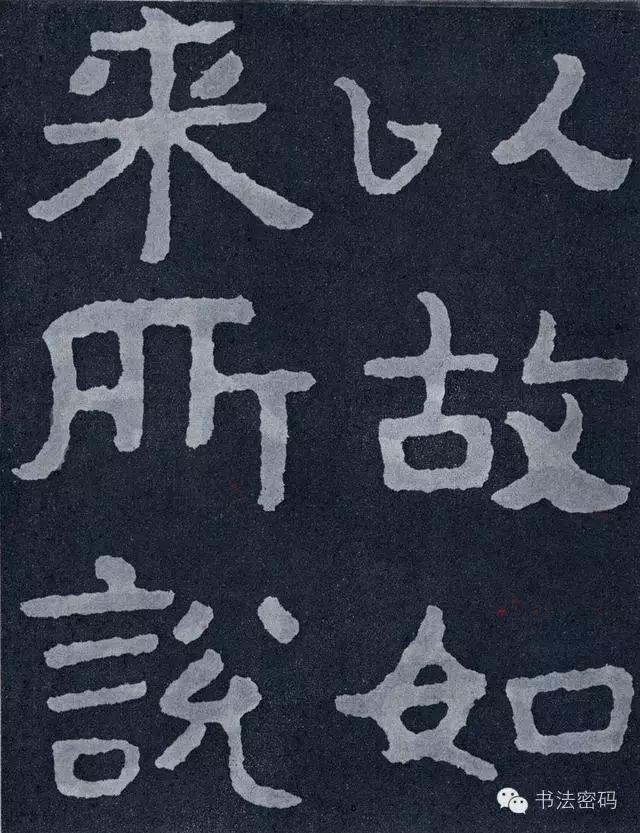 以故如
来所說
书法密码